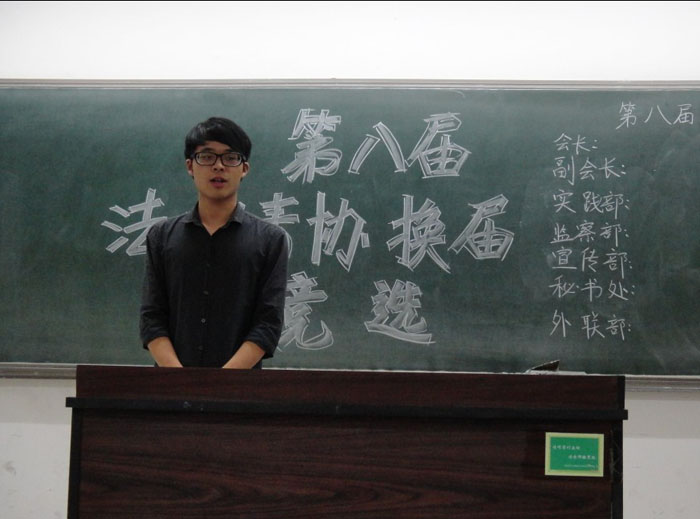 第八届
法 协换届
竞选
第八届
会长:
副会长:
实践部:
监察部:
宣传部:
秘书处:
外联部: